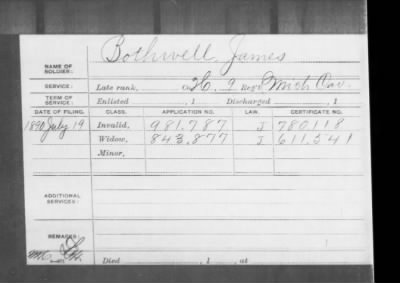 NAME OF SOLDIER: Bothwell, James
SERVICE: Late rank, Co H. 9 Reg't Mich Cav.
TERM OF SERVICE: Enlisted , 1 Discharged , 1
DATE OF FILING. CLASS. APPLICATION NO. LAW. CERTIFICATE NO.
1890 July 19 Invalid, 981.787 J 780118
Widow, 843.877 J 611.541
Minor,
ADDITIONAL SERVICES:
REMARKS:
Died , 1 , at